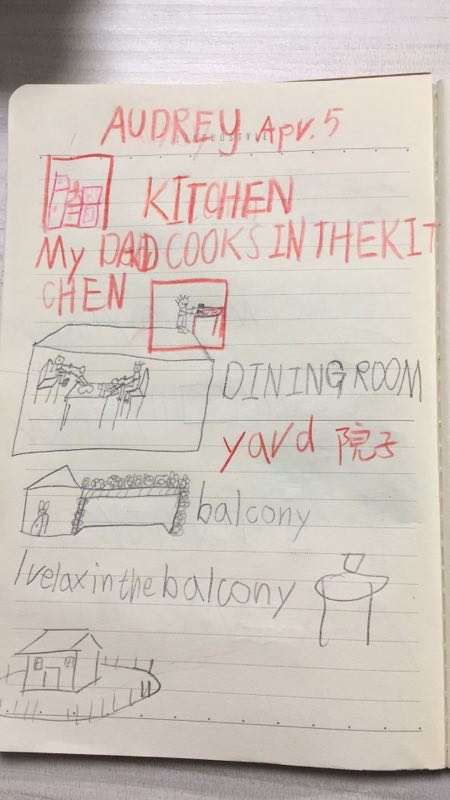 AUDREY Apr. 5
KITCHEN
My DAD COOKS IN THE KIT
CHEN
DINING ROOM
yard 院子
balcony
I relax in the balcony